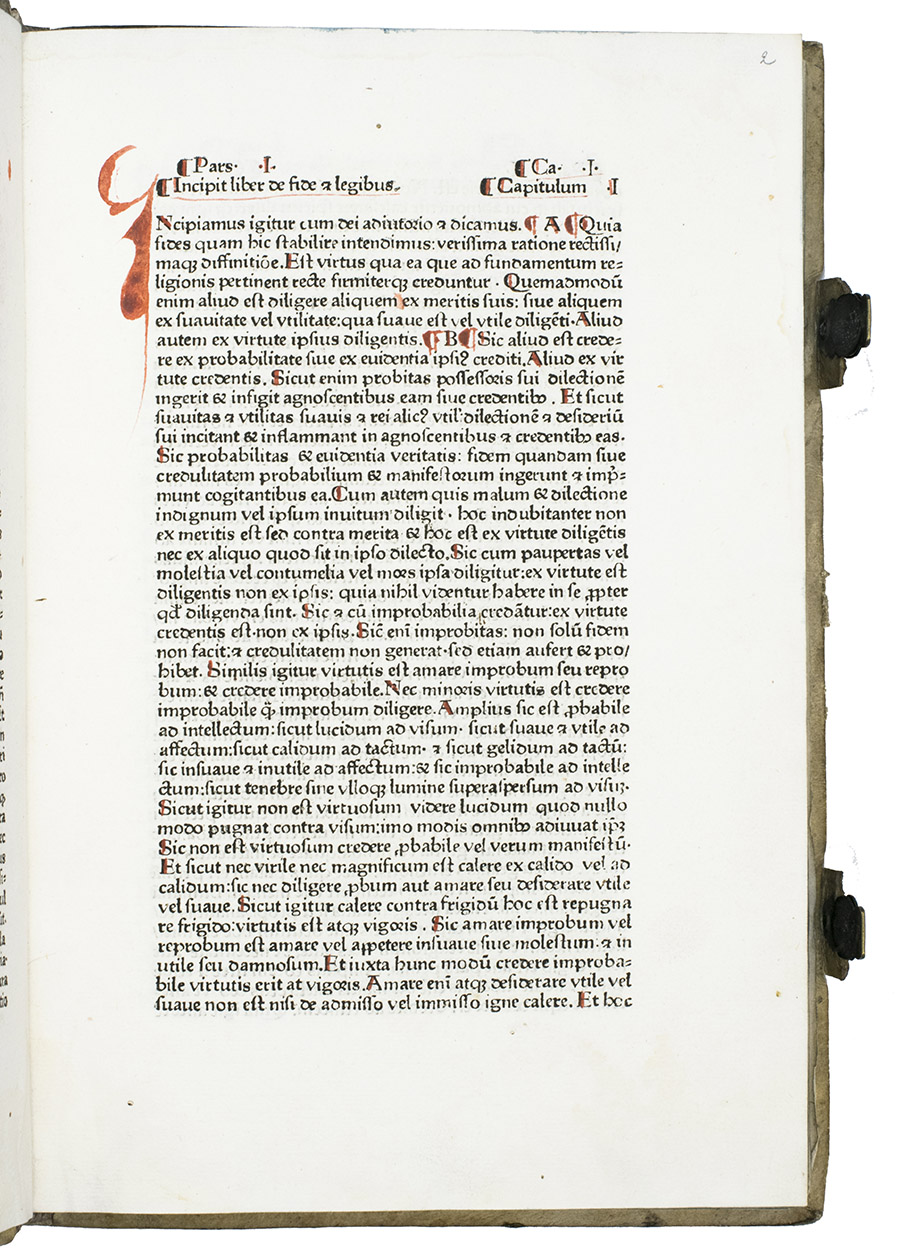 2
¶ Pars· ·I· ¶ Ca· ·I·
¶ Incipit liber de fide ⁊ legibus. ¶ Capitulum I
INcipiamus igitur cum dei adiutorio ⁊ dicamus. ¶ A ¶ Quia
fides quam hic stabilire intendimus: verissima ratione rectissi/
maqꝫ diffinitiōe. Est virtus qua ea que ad fundamentum re=
ligionis pertinent recte firmiterqꝫ creduntur · Quemadmodū
enim aliud est diligere aliquem ex meritis suis: siue aliquem
ex suauitate vel vtilitate: qua suaue est vel vtile diligēti· Aliud
autem ex virtute ipsius diligentis. ¶ B ¶ Sic aliud est crede=
re ex probabilitate siue ex euidentia ipsiꝰ crediti. Aliud ex vir
tute credentis. Sicut enim probitas possessoris sui dilectionē
ingerit & infigit agnoscentibus eam siue credentibꝫ . Et sicut
suauitas ⁊ vtilitas suauis ⁊ rei alicꝰ vtil: dilectionē ⁊ desideriū
sui incitant & inflammant in agnoscentibus ⁊ credentibꝫ eas·
Sic probabilitas & euidentia veritatis: fidem quandam siue
credulitatem probabilium & manifestorum ingerunt ⁊ imp̄=
munt cogitantibus ea. Cum autem quis malum & dilectione
indignum vel ipsum inuitum diligit · hoc indubitanter non
ex meritis est sed contra merita & hoc est ex virtute diligētis
nec ex aliquo quod sit in ipso dilecto. Sic cum paupertas vel
molestia vel contumelia vel mors ipsa diligitur: ex virtute est
diligentis non ex ipsis: quia nihil videntur habere in se ꝓpter
qđ diligenda sint. Sic ⁊ cū improbabilia credātur: ex virtute
credentis est· non ex ipsis. Sic̄ enī improbitas: non solū fidem
non facit: ⁊ credulitatem non generat· sed etiam aufert & pro/
hibet. Similis igitur virtutis est amare improbum seu repro
bum: & credere improbabile. Nec minoris virtutis est credere
improbabile q̄ȝ improbum diligere. Amplius sic est ꝓbabile
ad intellectum: sicut lucidum ad visum· sicut suaue ⁊ vtile ad
affectum: sicut calidum ad tactum· ⁊ sicut gelidum ad tactū:
sic insuaue ⁊ inutile ad affectum: & sic improbabile ad intelle
ctum: sicut tenebre sine vlloqꝫ lumine superaspersum ad visuꝫ·
Sicut igitur non est virtuosum videre lucidum quod nullo
modo pugnat contra visum: imo modis omnibꝫ adiuuat ip̄ꝫ
Sic non est virtuosum credere ꝓbabile vel verum manifestū·
Et sicut nec virile nec magnificum est calere ex calido vel ad
calidum: sic nec diligere ꝓbum aut amare seu desiderare vtile
vel suaue. Sicut igitur calere contra frigidū hoc est repugna
re frigido: virtutis est atqꝫ vigoris . Sic amare improbum vel
reprobum est amare vel appetere insuaue siue molestum: ⁊ in
utile seu damnosum. Et iuxta hunc modū credere improba=
bile virtutis erit at vigoris. Amare enī atqꝫ desiderare vtile vel
suaue non est nisi de admisso vel immisso igne calere. Et hoc